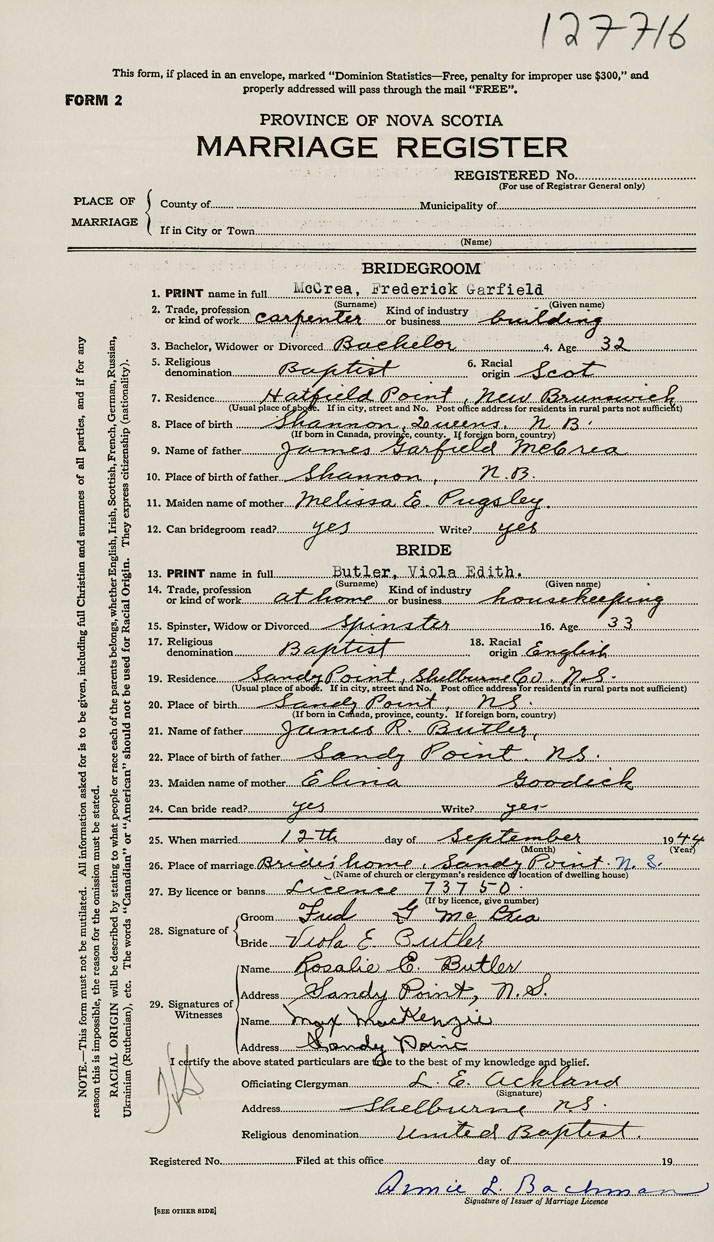 127716
This form, if placed in an envelope, marked "Dominion Statistics—Free, penalty for improper use $300," and
properly addressed will pass through the mail "FREE".
FORM 2
PROVINCE OF NOVA SCOTIA
MARRIAGE REGISTER
REGISTERED No.
(For use of Registrar General only)
PLACE OF MARRIAGE
County of Municipality of
If in City or Town
(Name)
BRIDEGROOM
1. PRINT name in full McCrea, Frederick Garfield
(Surname) (Given name)
2. Trade, profession or kind of work carpenter Kind of industry or business building
3. Bachelor, Widower or Divorced Bachelor 4. Age 32
5. Religious denomination Baptist 6. Racial origin Scot
7. Residence Hatfield Point, New Brunswick
(Usual place of abode. If in city, street and No. Post office address for residents in rural parts not sufficient)
8. Place of birth Shannon, Queens, N. B.
(If born in Canada, province, county. If foreign born, country)
9. Name of father James Garfield McCrea
10. Place of birth of father Shannon, N.B.
11. Maiden name of mother Melissa E. Pugsley.
12. Can bridegroom read? yes Write? yes
BRIDE
13. PRINT name in full Butler, Viola Edith.
(Surname) (Given name)
14. Trade, profession or kind of work at home Kind of industry or business housekeeping
15. Spinster, Widow or Divorced Spinster 16. Age 33
17. Religious denomination Baptist 18. Racial origin English
19. Residence Sandy Point, Shelburne Co. N.S.
(Usual place of abode. If in city, street and No. Post office address for residents in rural parts not sufficient)
20. Place of birth Sandy Point, N.S.
(If born in Canada, province, county. If foreign born, country)
21. Name of father James R. Butler,
22. Place of birth of father Sandy Point. N.S.
23. Maiden name of mother Elina Goodick
24. Can bride read? yes Write? yes
25. When married 12th day of September 1944
(Month) (Year)
26. Place of marriage Brides home, Sandy Point. N.S.
(Name of church or clergyman's residence or location of dwelling house)
27. By licence or banns Licence 73750.
(If by licence, give number)
28. Signature of
Groom Fred G McCrea
Bride Viola E Butler
29. Signatures of Witnesses
Name Rosalie E. Butler
Address Sandy Point, N.S.
Name Max MacKenzie
Address Sandy Point
I certify the above stated particulars are true to the best of my knowledge and belief.
Officiating Clergyman L. E. Ackland
(Signature)
Address Shelburne N.S.
Religious denomination United Baptist.
Registered No. Filed at this office day of 19
Annie L. Bachman
Signature of Issuer of Marriage Licence
[SEE OTHER SIDE]
NOTE.—This form must not be mutilated. All information asked for is to be given, including full Christian and surnames of all parties, and if for any
reason this is impossible, the reason for the omission must be stated.
RACIAL ORIGIN will be described by stating to what people or race each of the parents belongs, whether English, Irish, Scottish, French, German, Russian,
Ukrainian (Ruthenian), etc. The words "Canadian" or "American" should not be used for Racial Origin. They express citizenship (nationality).